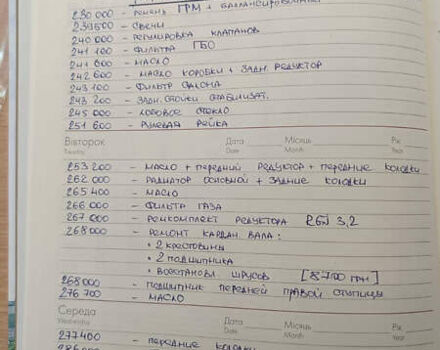 230 000 - ремень ГРМ + балансировочный
239500 - свечи
240 000 - регулировка клапанов
241 100 - фильтра ГБО
241 600 - масло
242 600 - масло коробки + задн. редуктор
243 100 - фильтр салона
243 200 - задн. стойки стабилизат.
245 000 - лобовое стекло
251 600 - рулевая рейка
Вівторок Дата Місяць Рік
Tuesday Date Month Year
253 200 - масло + передний редуктор + передние колодки
262 000 - радиатор основной + задние колодки
265 400 - масло
266 000 - фильтра газа
267 000 - ремкомплект редуктора 3,2
268 000 - ремонт кардан. вала:
• 2 крестовины
• 2 подшипника
• восстановл. шрусов [8700 грн]
268 000 - подшипник передней правой ступицы
276 700 - масло
Середа Дата Місяць Рік
Wednesday Date Month Year
277400 - передние колодки